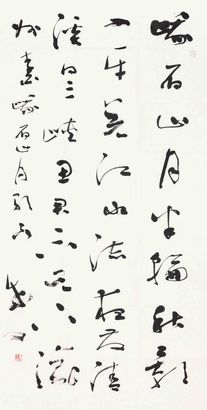 峨眉山月半輪秋影
入平羌江水流夜發清
溪向三峽思君不見下渝
州 峨眉山月歌